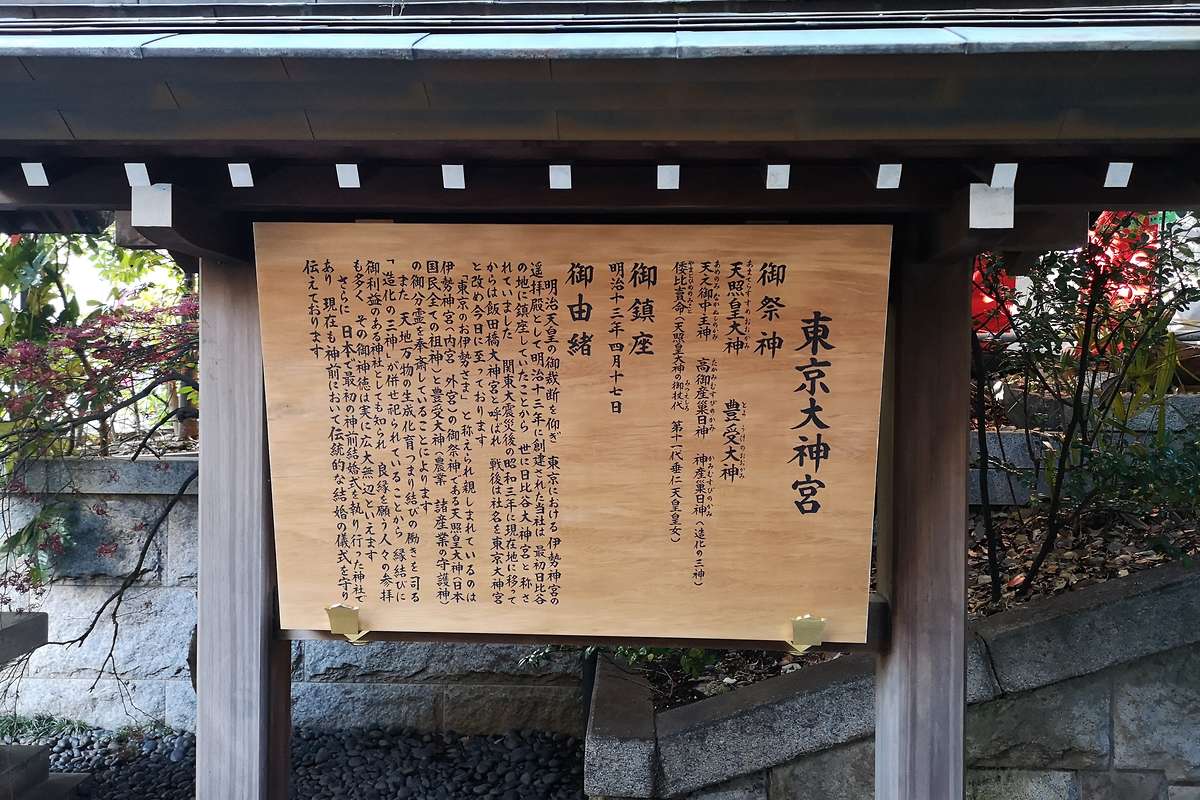 東京大神宮
御祭神
あまてらすすめおおかみ
天照皇大神
とようけのおおかみ
豊受大神
あめのみなかぬしのかみ
天之御中主神
たかみむすびのかみ
高御産巣日神
かみむすびのかみ
神産巣日神(造化の三神)
やまとひめのみこと
倭比賣命(天照皇大神の御杖代 第十一代垂仁天皇皇女)
御鎮座
明治十三年四月十七日
御由緒
明治天皇の御裁断を仰ぎ 東京における 伊勢神宮の
遥拝殿として明治十三年に創建された当社は 最初日比谷
の地に鎮座していたことから 世に日比谷大神宮と称さ
れていました 関東大震災後の昭和三年に現在地に移って
からは飯田橋大神宮と呼ばれ 戦後は社名を東京大神宮
と改め今日に至っております
「東京のお伊勢さま」と称えられ親しまれているのは
伊勢神宮(内宮 外宮)の御祭神である天照皇大神(日本
国民全ての祖神)と豊受大神(農業 諸産業の守護神)
の御分霊を奉斎していることによります
また 天地万物の生成化育つまり結びの働きを司る
「造化の三神」が併せ祀られていることから 縁結びに
御利益のある神社としても知られ 良縁を願う人々の参拝
も多く その御神徳は実に広大無辺といえます
さらに 日本で最初の神前結婚式を執り行った神社で
あり 現在も神前において伝統的な結婚の儀式を守り
伝えております